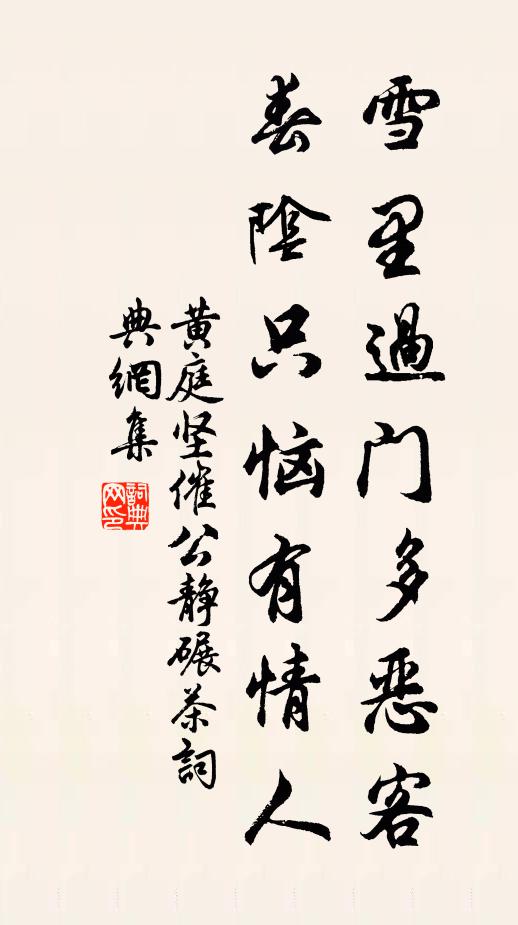 雪里過门多恶客
春陰只恼有情人
黄庭坚催公静碾茶詞
典網集
詞典网印